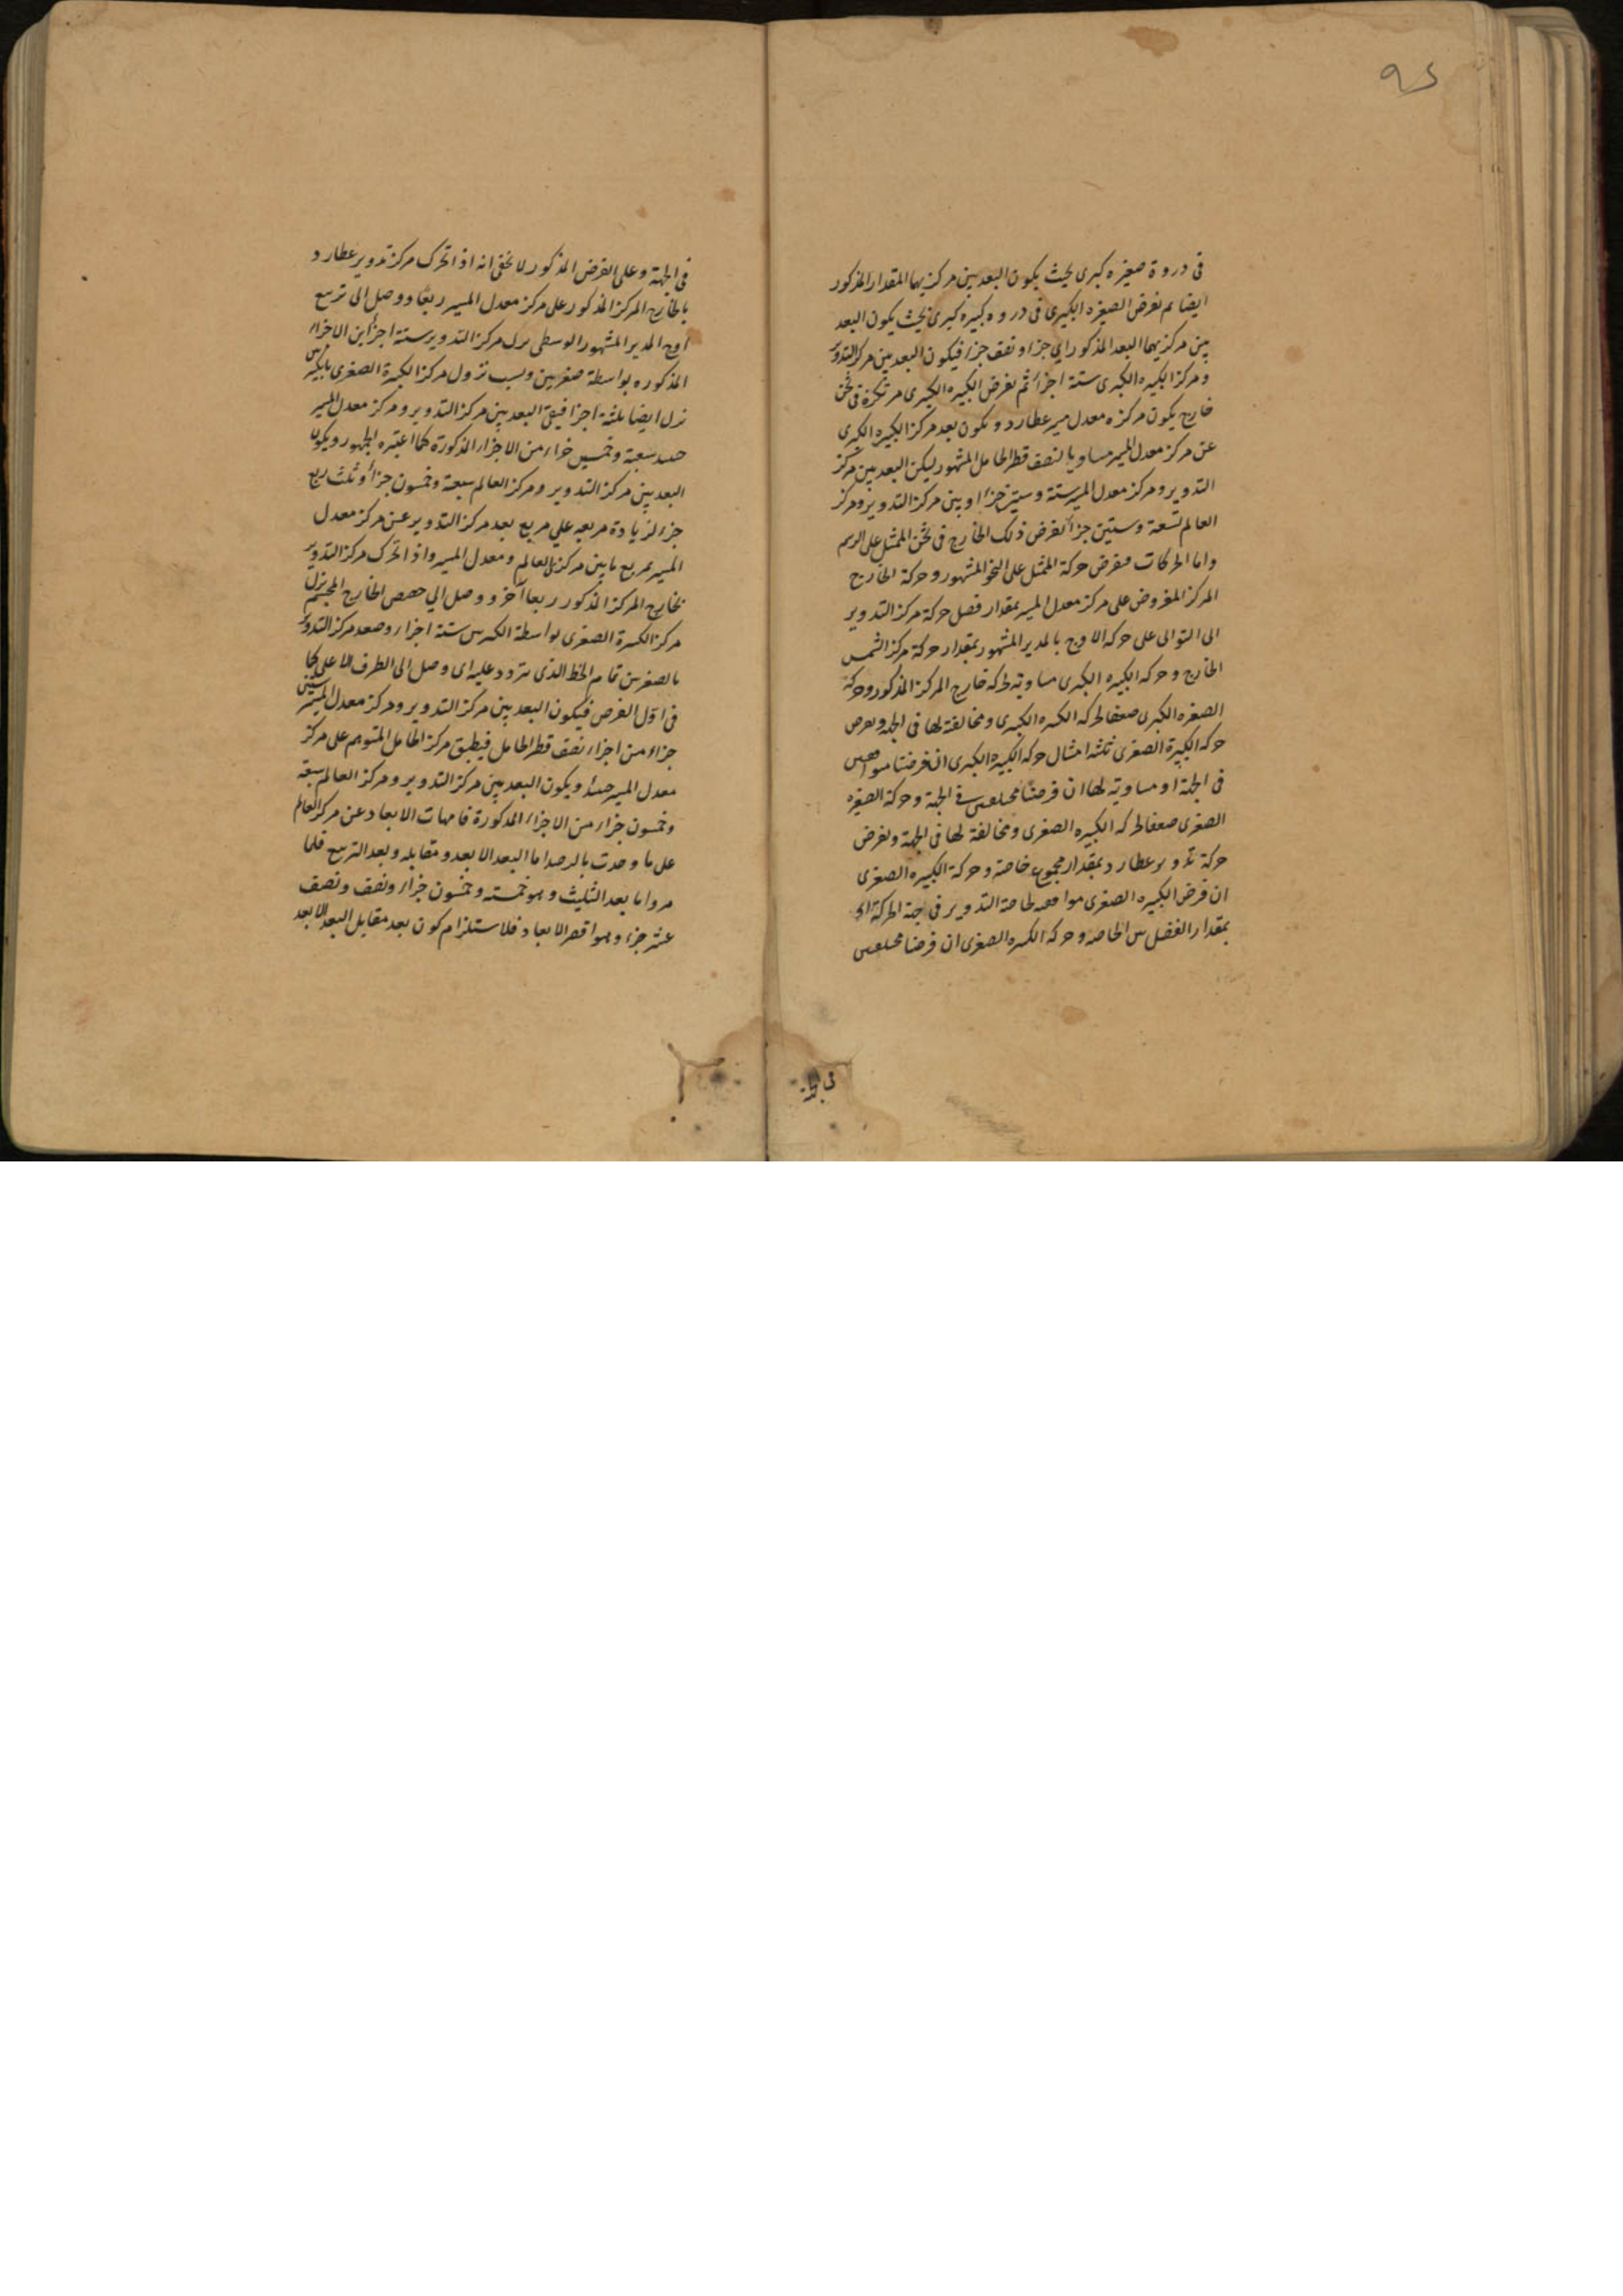 ٩٤
فى دروة صغيره كبرى بحيث يكون البعد بين مركزيهما المقدار المذكور
ايضا ثم نفرض الصغيره الكبرى فى دروه كبيره كبرى بحيث يكون البعد
بين مركزيهما البعد المذكور اى جزاء ونصف جزء فيكون البعد بين مركز التدوير
ومركز الكبيره الكبرى ستة اجزاء ثم نفرض الكبيره الكبرى مرتكزة فى ثخن
خارج يكون مركزه معدل مسير عطارد ويكون بعد مركز الكبيره الكبرى
عن مركز معدل المسير مساويا لنصف قطر الحامل المشهور ليكن البعد بين مركز
التدوير ومركز معدل المسير ستة وستين جزءا وبين مركز التدوير ومركز
العالم تسعة وستين جزأ نفرض ذلك الخارج فى ثخن الممثل على الرسم
واما الحركات فنفرض حركة الممثل على النحو المشهور وحركة الخارج
المركز المفروض على مركز معدل المسير بمقدار فضل حركة مركز التدوير
الى التوالى على حركه الاوج بالمدير المشهور بمقدار حركة مركز الشمس
الخارج وحركه الكبيره الكبرى مساويه لحركه خارج المركز المذكور وحركة
الصغره الكبرى ضعفا لحركه الكبيره الكبرى ومخالفة لها فى الجهة ونفرض
حركه الكبيرة الصغرى ثلثه امثال حركه الكبيره الكبرى ان فرضنا متوافقين
فى الجهة او مساويه لها ان فرضنا مختلفين فى الجهة وحركة الصغيره
الصغرى ضعفا لحركه الكبيره الصغرى ومخالفة لها فى الجهة ونفرض
حركة تدوير عطارد بمقدار مجموع خاصته وحركة الكبيره الصغرى
ان فرض الكبيره الصغرى موافقه لخاصة التدوير فى جهة الحركة او
بمقدار الفضل بين الخاصه وحركه الكبيره الصغرى ان فرضنا مختلفين
فى الجهة
فى الجهة وعلى الفرض المذكور لا يخفى انه اذا تحرك مركز تدوير عطارد
بالخارج المركز المذكور على مركز معدل المسير ربعا ووصل الى تربيع
اوج المدير المشهور الوسطى نزل مركز التدوير ستة اجزأ من الاجزاء
المذكوره بواسطة صغرين وبسبب نزول مركز الكبيرة الصغرى بالكبيرين
نزل ايضا ثلثة اجزا فيبقى البعد بين مركز التدوير ومركز معدل المسير
حينئذ سبعة وخمسين جزاء من الاجزاء المذكورة كما اعتبره الجمهور ويكون
البعد بين مركز التدوير ومركز العالم سبعة وخمسون جزأ وثلث ربع
جزء لزيادة مربعه على مربع بعد مركز التدوير عن مركز معدل
المسير بمربع ما بين مركزى العالم ومعدل المسير واذا تحرك مركز التدوير
بخارج المركز المذكور ربعا آخر ووصل الى حضيض الخارج المجسم نزل
مركز الكبيرة الصغرى بواسطة الكبيرين ستة اجزاء وصعد مركز التدوير
بالصغرين تمام الخط الذى يتردد عليه اى وصل الى الطرف الاعلى كما
فى اول الفرض فيكون البعد بين مركز التدوير ومركز معدل المسير ستين
جزاء من اجزاء نصف قطر الحامل فينطبق مركز الحامل المتوهم على مركز
معدل المسير حينئذ ويكون البعد بين مركز التدوير ومركز العالم سبعة
وخمسون جزاء من الاجزاء المذكورة فامهات الابعاد عن مركز العالم
على ما وجدت بالرصد اما البعد الابعد ومقابله وبعد التربيع فلما
مر واما بعد التثليث وهو خمسة وخمسون جزاء ونصف ونصف
عشر جزء وهو اقصر الابعاد فلاستلزام كون بعد مقابل البعد الابعد